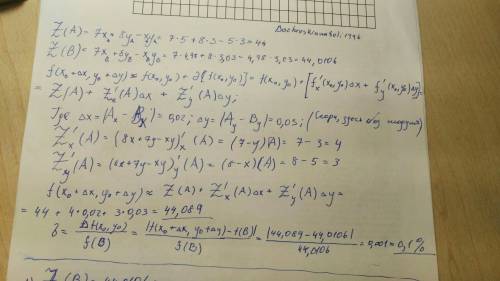 Dachovskiианatoli.1996
Z(A) = 7x₀ + 8y₀ - x₀y₀ = 7·5 + 8·3 - 5·3 = 44
Z(B) = 7x₀ + 8y₀ - x₀y₀ = 7·4,98 + 8·3,03 - 4,98·3,03 = 44,0106
f(x₀+Δx, y₀+Δy) ≈ f(x₀, y₀) + d[f(x₀, y₀)] = f(x₀, y₀) + [f'x(x₀, y₀)Δx + f'y(x₀, y₀)Δy] =
= Z(A) + Z'x(A)Δx + Z'y(A)Δy;
Где Δx = |Ax - Bx| = 0,02; Δy = |Ay - By| = 0,03; (Скоро, здесь без модуля)
Z'x(A) = (8x + 7y - xy)'x (A) = (7-y)(A) = 7 - 3 = 4
Z'y(A) = (8x + 7y - xy)'y (A) = (8-x)(A) = 8 - 5 = 3
f(x₀ + Δx, y₀ + Δy) ≈ Z(A) + Z'x(A)Δx + Z'y(A)Δy =
= 44 + 4·0,02 + 3·0,03 = 44,089
δ = Δf(x₀, y₀) / f(B) = |f(x₀+Δx, y₀+Δy) - f(B)| / f(B) = |44,089 - 44,0106| / 44,0106 = 0,001 = 0,1%
Z(B) = 44,0106